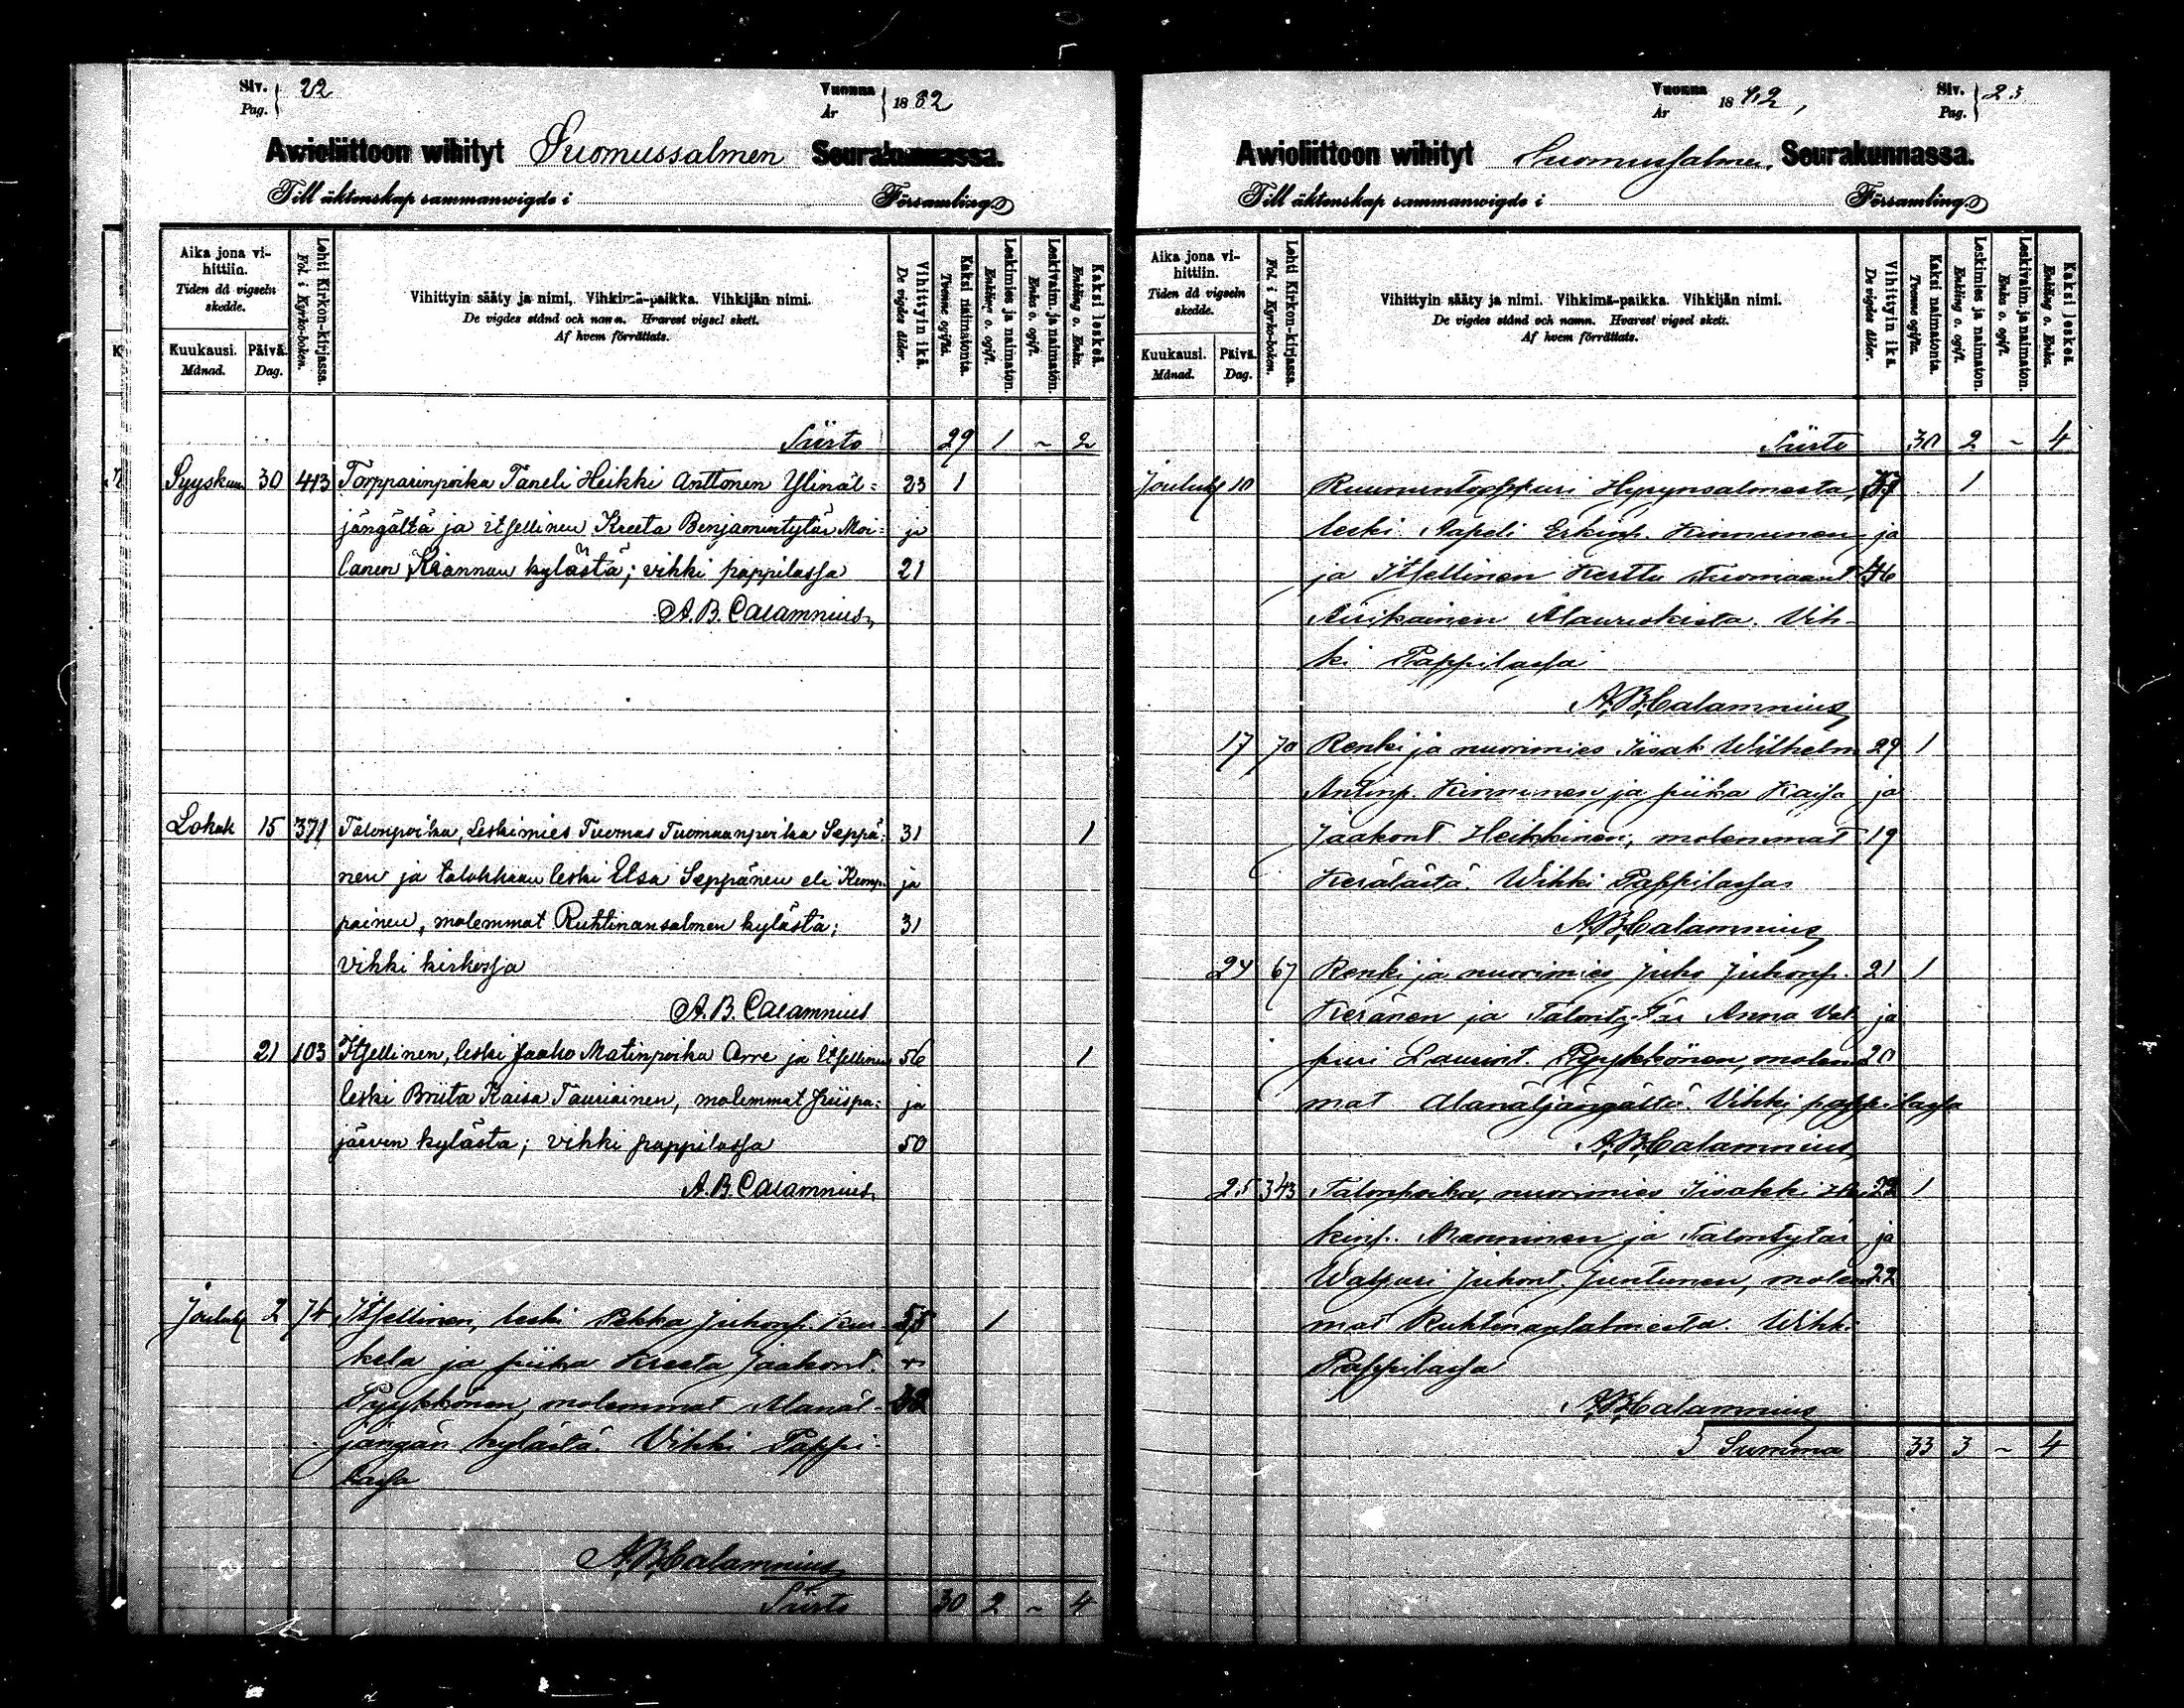 Siv. 22
Pag.
Vuonna 1882
År
Awioliittoon wihityt Suomussalmen Seurakunnassa.
Till äktenskap sammanwigde i Församling
Aika jona vihittiin.
Tiden då vigseln skedde.
Kuukausi. Månad.
Päivä. Dag.
Lehti Kirkon-kirjassa.
Fol. i Kyrko-boken.
Vihittyin sääty ja nimi. Vihkimä-paikka. Vihkijän nimi.
De vigdes stånd och namn. Hvarest vigsel skett.
Af hvem förrättats.
Vihittyin ikä.
De vigdes ålder.
Kaksi naimatonta.
Tvenne ogifta.
Leskimies ja naimaton.
Enkling o. ogift.
Leskivaim. ja naimaton.
Enka o. ogift.
Kaksi leskeä.
Enkling o. Enka.
Siirto 29 1 ~ 2
Syyskuu 30 413 Torpparinpoika Taneli Heikki Anttonen Ylinäl= 23 1
jängältä ja itsellinen Kreeta Benjamintytär Moi= ja
lanen Kiannan kylästä; vihki pappilassa 21
A. B. Calamnius
Lokak 15 371 Talonpoika, Leskimies Tuomas Tuomaanpoika Seppä= 31 1
nen ja talokkaan leski Elsa Seppänen eli Kemp= ja
painen, molemmat Ruhtinansalmen kylästä; 31
vihki kirkossa
A. B. Calamnius
21 103 Itsellinen, leski Jaako Matinpoika Arre ja itsellinen 56 1
leski Briita Kaisa Tauriainen, molemmat Piispa= ja
järven kylästä; vihki pappilassa 50
A. B. Calamnius
Jouluk 2 74 Itsellinen, leski Pekka Juhonp. Kur- 55 1
kela ja piika Kreeta Jaakont.
Pyykkönen, molemmat Alanäl-
jängän kylästä. Vihki Pappi-
lassa
A. B. Calamnius
Siirto 30 2 ~ 4
Vuonna 1882,
År
Siv. 23
Pag.
Awioliittoon wihityt Suomussalmen Seurakunnassa.
Till äktenskap sammanwigde i Församling
Aika jona vihittiin.
Tiden då vigseln skedde.
Kuukausi. Månad.
Päivä. Dag.
Lehti Kirkon-kirjassa.
Fol. i Kyrko-boken.
Vihittyin sääty ja nimi. Vihkimä-paikka. Vihkijän nimi.
De vigdes stånd och namn. Hvarest vigsel skett.
Af hvem förrättats.
Vihittyin ikä.
De vigdes ålder.
Kaksi naimatonta.
Tvenne ogifta.
Leskimies ja naimaton.
Enkling o. ogift.
Leskivaim. ja naimaton.
Enka o. ogift.
Kaksi leskeä.
Enkling o. Enka.
Siirto 30 2 ~ 4
Jouluk 10 Ruununtorppari Hyrynsalmesta, 1
leski Aapeli Erkinp. Kinnunen ja
ja Itsellinen Kerttu Tuomaant 46
Alauriskista. Vih-
ki Pappilassa
A. B. Calamnius
17 70 Renki ja nuorimies Iisak Wilhelm 29 1
Antinp. Kinnunen ja piika Kaisa ja
Jaakont. Heikkinen, molemmat 19
Kerälästä. Wihki Pappilassa
A. B. Calamnius
24 67 Renki ja nuorimies Juho Juhonp. 21 1
Keränen ja Talontytär Anna Val- ja
puri Laurint. Pyykkönen, molem 20
mat Alanäljängältä. Vihki pappilassa
A. B. Calamnius
25 343 Talonpoika, nuorimies Iisakki Hei 22 1
kinp. Manninen ja Talontytär ja
Walpuri Juhont. Juntunen, molem 22
mat Ruhtinansalmesta. Wihki
Pappilassa
A. B. Calamnius
Summa 33 3 ~ 4